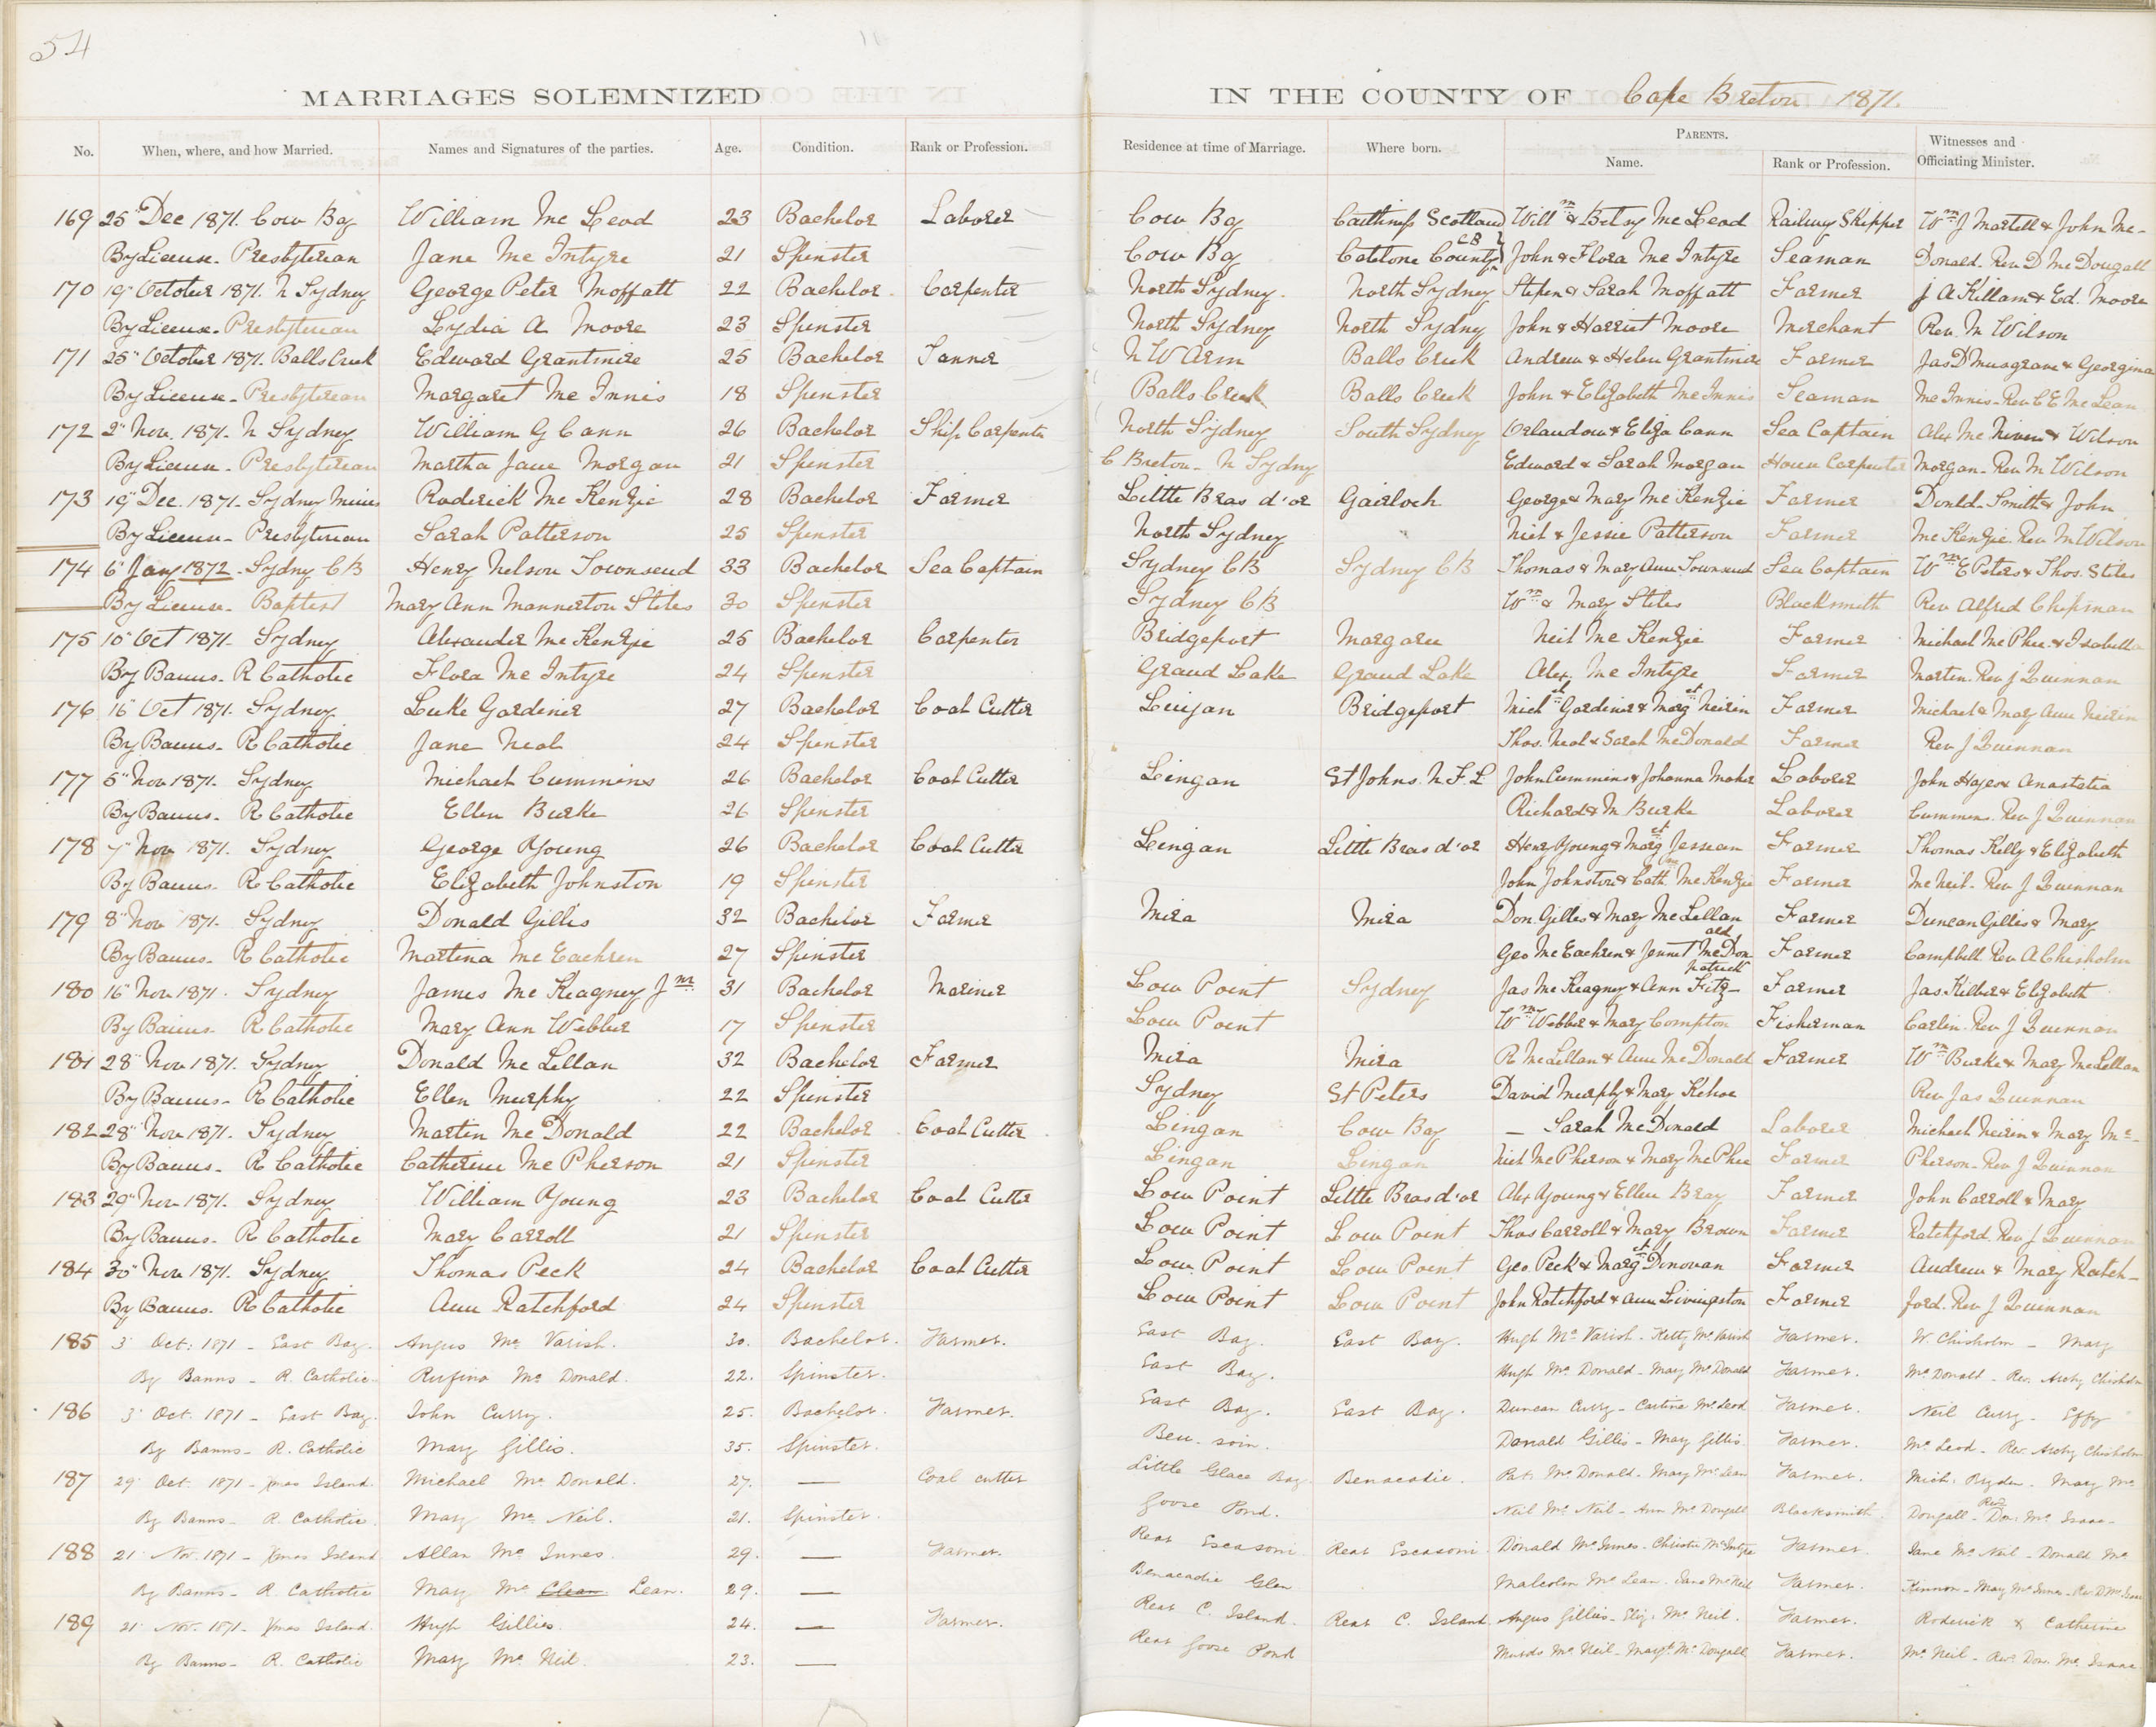 54
MARRIAGES SOLEMNIZED IN THE COUNTY OF Cape Breton 1871.
No. When, where, and how Married. Names and Signatures of the parties. Age. Condition. Rank or Profession. Residence at time of Marriage. Where born. PARENTS. Name. Rank or Profession. Witnesses and Officiating Minister.
169 25" Dec 1871. Cow Bay William Mc Leod 23 Bachelor Laborer Cow Bay Caithness Scotland Willm & Betsy Mc Leod Railway Skipper Wm J Martell & John Mc-
By License - Presbyterian Jane Mc Intyre 21 Spinster Cow Bay Catalone County CB John & Flora Mc Intyre Seaman Donald. Rev D Mc Dougall
170 19" October 1871. N Sydney George Peter Moffatt 22 Bachelor Carpenter North Sydney North Sydney Stepen & Sarah Moffatt Farmer J A Killam & Ed. Moore
By License - Presbyterian Lydia A Moore 23 Spinster North Sydney North Sydney John & Harriet Moore Merchant Rev. M Wilson
171 25" October 1871. Balls Creek Edward Grantmire 25 Bachelor Tanner N W Arm Balls Creek Andrew & Helen Grantmire Farmer Jas D Musgrave & Georgina
By License - Presbyterian Margaret Mc Innis 18 Spinster Balls Creek Balls Creek John & Elizabeth Mc Innis Seaman Mc Innis - Rev C E Mc Lean
172 2" Nov. 1871. N Sydney William G Cann 26 Bachelor Ship Carpenter North Sydney South Sydney Orlandow & Eliza Cann Sea Captain Alex Mc Niven & Wilson
By License - Presbyterian Martha Jane Morgan 21 Spinster C Breton - N Sydney Edward & Sarah Morgan House Carpenter Morgan - Rev M Wilson
173 19" Dec. 1871 - Sydney Mines Roderick Mc Kenzie 28 Bachelor Farmer Little Bras d'or Gairloch George & Mary Mc Kenzie Farmer Donld - Smith & John
By License - Presbyterian Sarah Patterson 25 Spinster North Sydney Neil & Jessie Patterson Farmer Mc Kenzie. Rev M Wilson
174 6" Jany 1872 - Sydney CB Henry Nelson Townsend 33 Bachelor Sea Captain Sydney CB Sydney CB Thomas & Mary Ann Townsend Sea Captain Wm E Peters & Thos. Stiles
By License - Baptist Mary Ann Mannerton Stiles 30 Spinster Sydney CB Wm & Mary Stiles Blacksmith Rev Alfred Chipman
175 10" Oct 1871 - Sydney Alexander Mc Kenzie 25 Bachelor Carpenter Bridgeport Margaree Neil Mc Kenzie Farmer Michael Mc Phee & Isabella
By Banns - R Catholic Flora Mc Intyre 24 Spinster Grand Lake Grand Lake Alex Mc Intyre Farmer Martin. Rev J Quinnan
176 16" Oct 1871. Sydney Luke Gardiner 27 Bachelor Coal Cutter Lingan Bridgeport Michl Gardiner & Margt Neirin Farmer Michael & Mary Ann Neirin
By Banns - R Catholic Jane Neal 24 Spinster Thos. Neal & Sarah McDonald Farmer Rev J Quinnan
177 5" Nov 1871. Sydney Michael Cummins 26 Bachelor Coal Cutter Lingan St Johns. N.F.L John Cummins & Johanna Maher Laborer John Hayes & Anastatia
By Banns - R Catholic Ellen Burke 26 Spinster Richard & M Burke Laborer Cummins. Rev J Quinnan
178 7" Nov 1871. Sydney George Young 26 Bachelor Coal Cutter Lingan Little Bras d'or Henry Young & Margt Jessean Farmer Thomas Kelly & Elizabeth
By Banns - R Catholic Elizabeth Johnston 19 Spinster John Johnston & Cath Mc Kenzie Farmer Mc Neil - Rev J Quinnan
179 8" Nov 1871. Sydney Donald Gillis 32 Bachelor Farmer Mira Mira Don. Gillis & Mary Mc Lellan Farmer Duncan Gillis & Mary
By Banns - R Catholic Martina Mc Eachren 27 Spinster Geo Mc Eachren & Jennet Mc Donald Farmer Campbell Rev A Chisholm
180 16" Nov 1871. Sydney James Mc Keagney Jnr 31 Bachelor Mariner Low Point Sydney Jas Mc Keagney & Ann Fitzpatrick Farmer Jas. Killer & Elizabeth
By Banns - R Catholic Mary Ann Webber 17 Spinster Low Point Wm Webber & Mary Compton Fisherman Carlin. Rev J Quinnan
181 28" Nov 1871. Sydney Donald Mc Lellan 32 Bachelor Farmer Mira Mira R McLellan & Ann Mc Donald Farmer Wm Burke & Mary McLellan
By Banns - R Catholic Ellen Murphy 22 Spinster Sydney St Peters David Murphy & Mary Kehoe Rev Jas Quinnan
182 28" Nov 1871. Sydney Martin Mc Donald 22 Bachelor Coal Cutter Lingan Cow Bay — Sarah Mc Donald Laborer Michael Neirin & Mary Mc-
By Banns - R Catholic Catherine Mc Pherson 21 Spinster Lingan Lingan Neil Mc Pherson & Mary Mc Phee Farmer Pherson - Rev J Quinnan
183 29" Nov 1871. Sydney William Young 23 Bachelor Coal Cutter Low Point Little Bras d'or Alex Young & Ellen Bray Farmer John Carroll & Mary
By Banns - R Catholic Mary Carroll 21 Spinster Low Point Low Point Thos Carroll & Mary Brown Farmer Ratchford. Rev J Quinnan
184 30" Nov 1871. Sydney Thomas Peck 24 Bachelor Coal Cutter Low Point Low Point Geo. Peck & Margt Donovan Farmer Andrew & Mary Ratch-
By Banns - R Catholic Ann Ratchford 24 Spinster Low Point Low Point John Ratchford & Ann Livingston Farmer ford. Rev J Quinnan
185 3 Oct. 1871 - East Bay. Angus Mc Varish. 30. Bachelor. Farmer. East Bay. East Bay. Hugh Mc Varish - Ketty Mc Varish Farmer. W. Chisholm - Mary
By Banns - R. Catholic Rufina Mc Donald. 22. Spinster. East Bay. Hugh Mc Donald - Mary Mc Donald Farmer. Mc Donald - Rev. Archy Chisholm
186 3 Oct. 1871 - East Bay. John Curry. 25. Bachelor. Farmer. East Bay. East Bay. Duncan Curry - Mc Leod Farmer. Neil Curry - Effy
By Banns - R. Catholic Mary Gillis. 35. Spinster. Donald Gillis - Mary Gillis Farmer. Mc Leod - Rev. Archy Chisholm
187 29 Oct. 1871 - Xmas Island. Michael Mc Donald. 27. — Coal cutter Little Glace Bay Benacadie. Pat. Mc Donald - Mary Mc Lean Farmer. Mich. Bryden - Mary Mc
By Banns - R. Catholic. Mary Mc Neil. 21. Spinster. Goose Pond. Neil Mc Neil - Ann Mc Dougall Blacksmith. Dougall - Rev. Don. Mc Isaac
188 21 Nov. 1871 - Xmas Island Allan Mc Innes. 29. — Farmer. Rear Escasoni. Rear Escasoni. Donald Mc Innes - Christie McIntyre Farmer. Jane Mc Neil - Donald Mc
By Banns - R. Catholic Mary Mc Clean Lean. 29. — Benacadie Glen Malcolm Mc Lean - Jane Mc Neil Farmer. Kinnon - Mary Mc Innes - Rev. D Mc Isaac
189 21 Nov. 1871 - Xmas Island. Hugh Gillies. 24. — Farmer. Rear C. Island. Rear C. Island. Angus Gillies - Eliz. Mc Neil. Farmer. Roderick & Catherine
By Banns - R. Catholic Mary Mc Neil. 23. — Rear Goose Pond Murdo Mc Neil - Margt. Mc Dougall Farmer. Mc Neil - Rev. Don. Mc Isaac